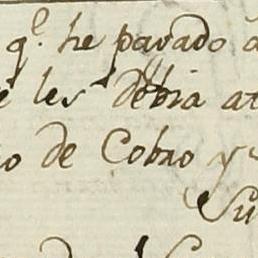 q.e he pavado a
e les debia at
o de Cobro y
Su